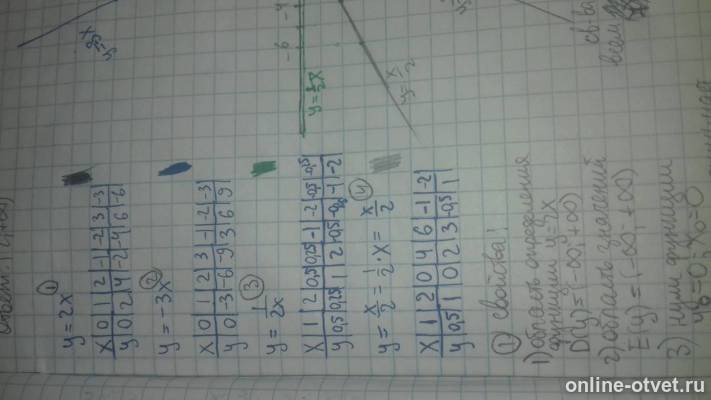 ①
y = 2x
x | 0 | 1 | 2 | -1 | -2 | 3 | -3
y | 0 | 2 | 4 | -2 | -4 | 6 | -6
②
y = -3x
x | 0 | 1 | 2 | 3 | -1 | -2 | -3
y | 0 | -3 | -6 | -9 | 3 | 6 | 9
③
y = 1/2x
x | 1 | 2 | 0,5 | 0,25 | -1 | -2 | -0,5 | -0,25
y | 0,5 | 0,25 | 1 | 2 | -0,5 | -1 | -2
④
y = x/2 = 1/2 · x = x/2
x | 1 | 2 | 0 | 4 | 6 | -1 | -2
y | 0,5 | 1 | 0 | 2 | 3 | -0,5 | 1
① свойства!
1) область определения
функции y = 2x
D(y) = (-∞; +∞)
2) область значений
E(y) = (-∞; +∞)
3) нули функции
y0 = 0; x0 = 0
-6 -4
y = 1/2x
y = x/2
св-ва
всем
online-otvet.ru